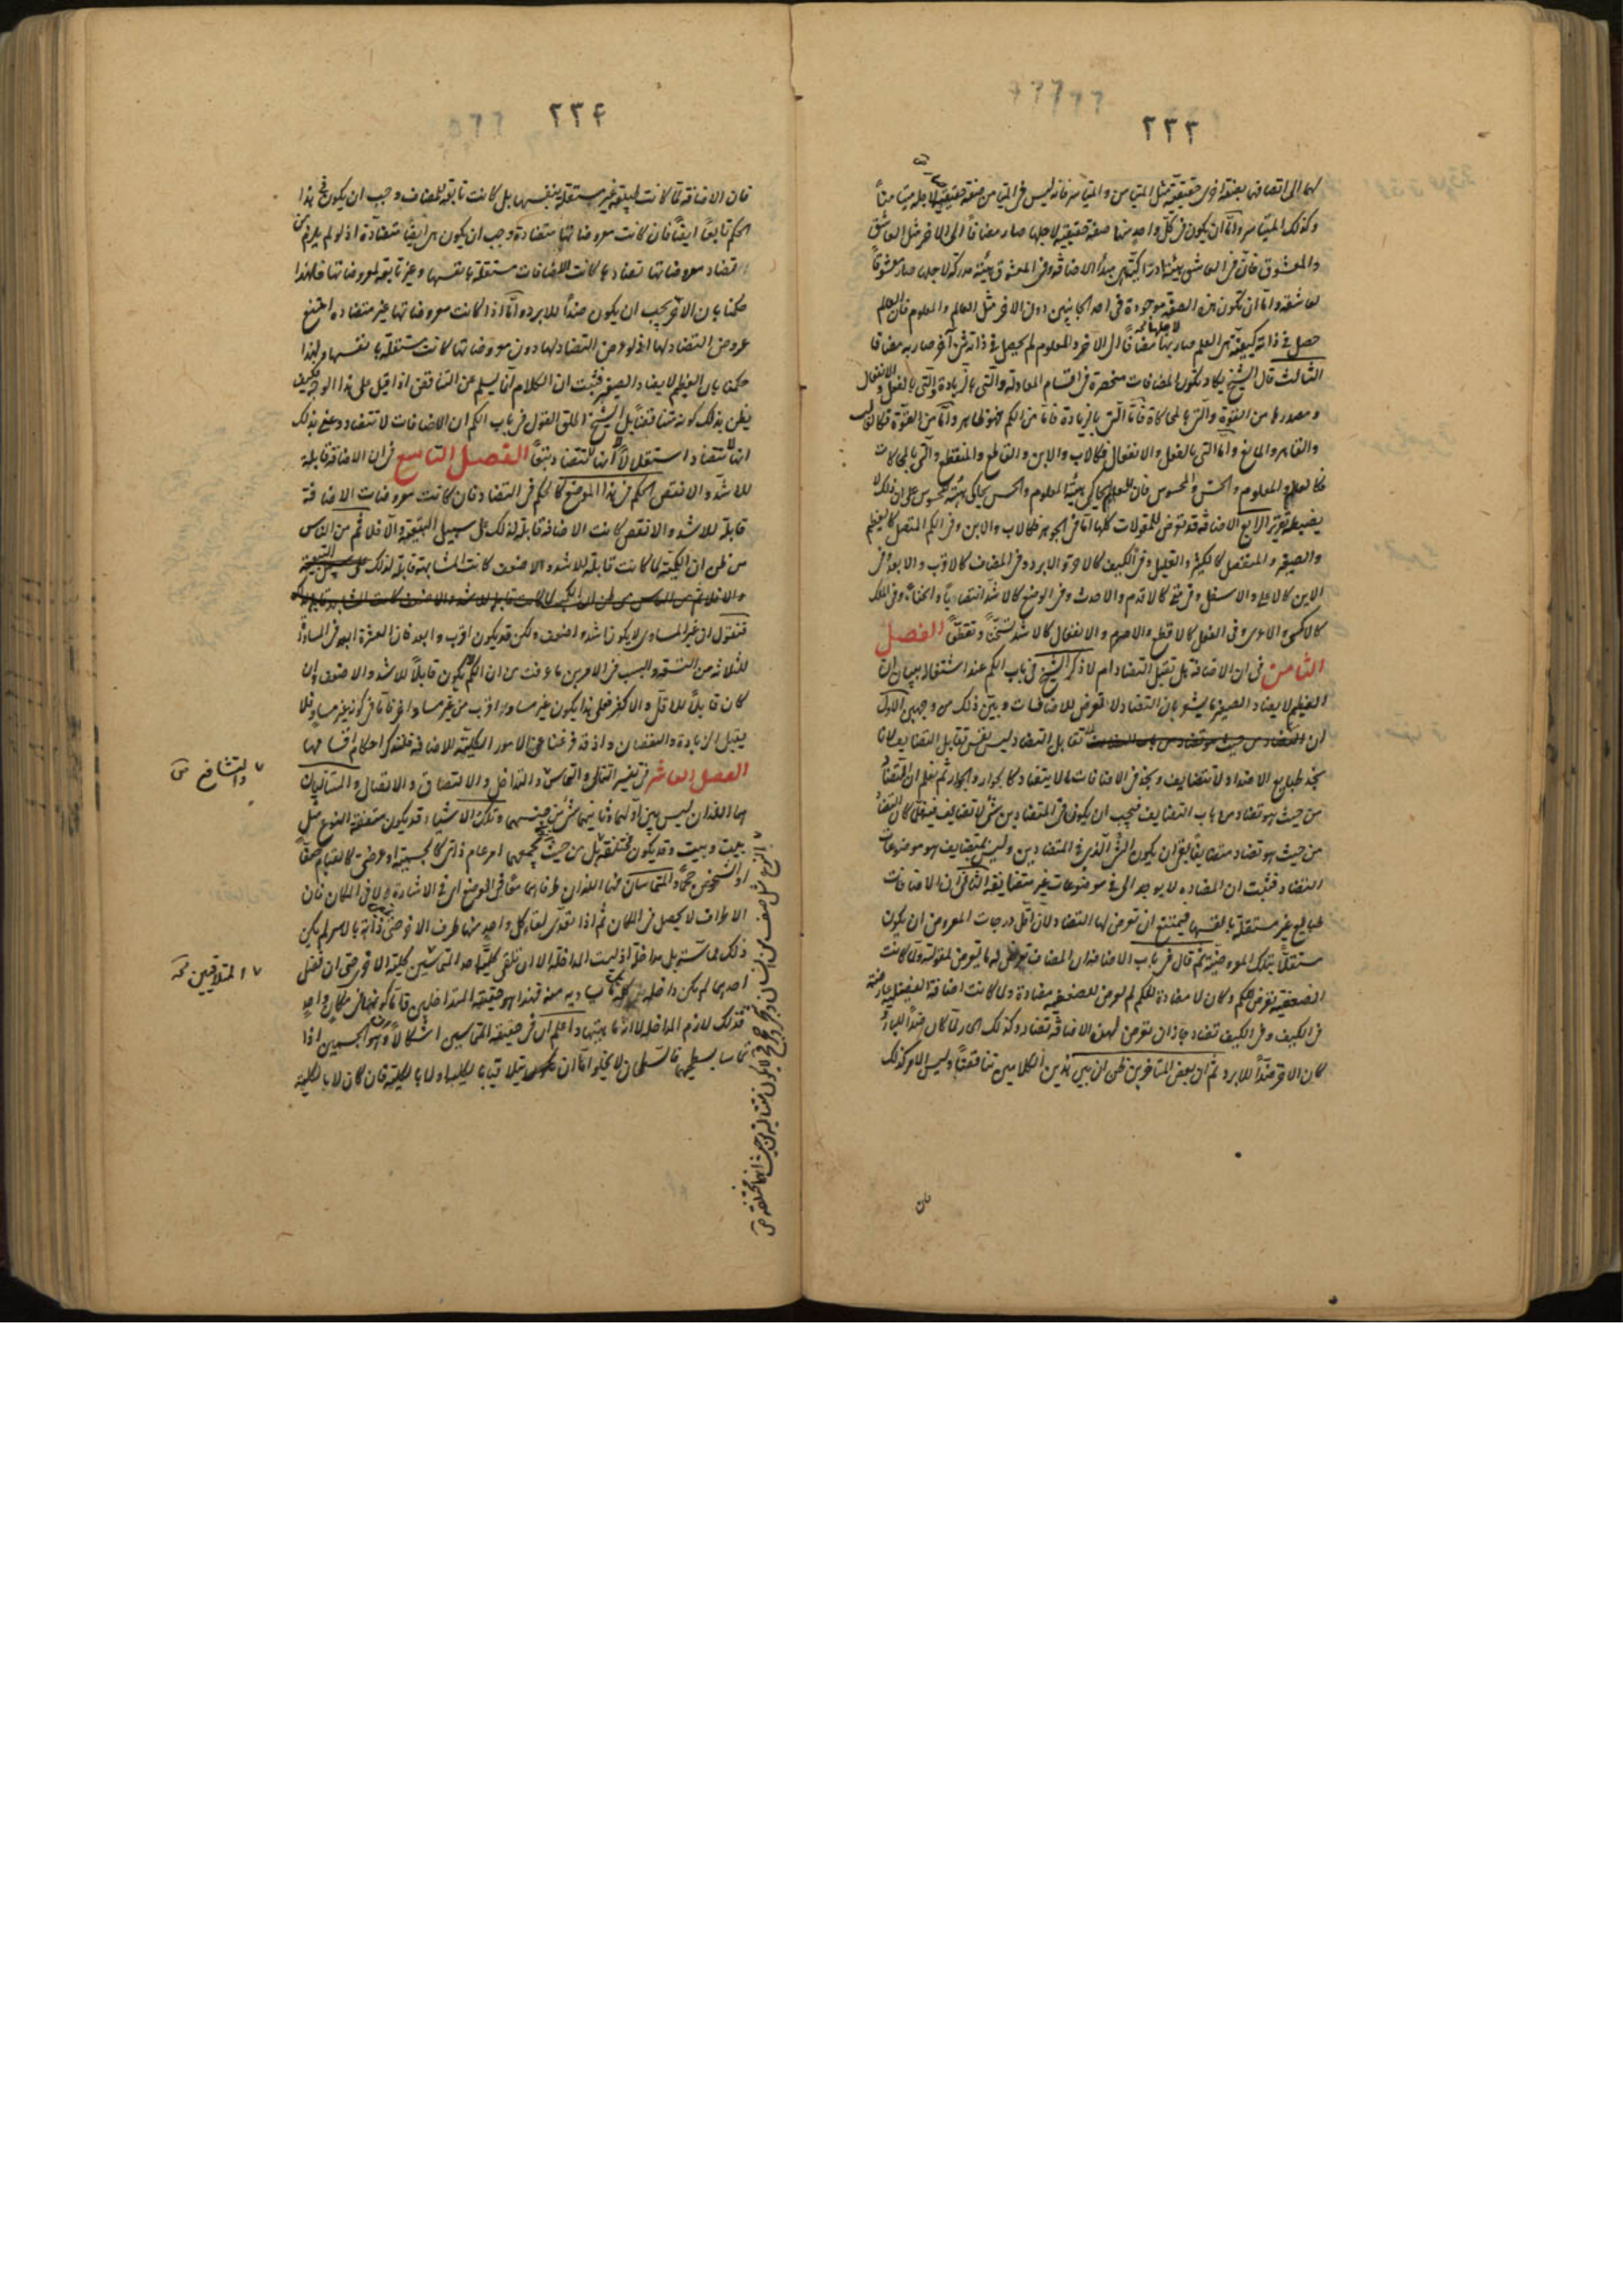 ٢٣٣
لهما الى اتصافهما بصفة اخرى حقيقية مثل المتيامن والمتياسر فانه ليس في المتيامن صفة حقيقية لاجلها صار متيامناً
وكذلك المتياسر واما ان يكون في كل واحد منهما صفة حقيقية لاجلها صار مضافاً الى الاخر مثل العاشق
والمعشوق فان في العاشق هيئة ادراكية هي مبدأ الاضافة وفي المعشوق هيئة مدركة لاجلها صار معشوقاً
لعاشقه واما ان يكون هذه الصفة موجودة في احد الجانبين دون الاخر مثل العالم والمعلوم فان العالم
حصل في ذاته كيفية هي العلم صار بها مضافاً الى الاخر والمعلوم لم يحصل في ذاته شئ آخر صار به مضافا
الثالث قال الشيخ يكاد تكون المضافات منحصرة في اقسام المعادلة والتي بالزيادة والتي بالفعل والانفعال
ومصدرها من القوة والتي بالمحاكاة فاما التي بالزيادة فاما من الكم فهو ظاهر واما من القوة فكالغالب
والقاهر والمانع واما التي بالفعل والانفعال فكالاب والابن والقاطع والمنقطع والتي بالمحاكات
فكالعلم والمعلوم والحس والمحسوس فان العلم يحاكي هيئة المعلوم والحس يحاكي هيئة المحسوس على ان ذلك لا
يضبط تقريره الرابع الاضافة قد تعرض للمقولات كلها اما في الجوهر فكالاب والابن وفي الكم المتصل كالعظيم
والصغير والمنفصل كالكثير والقليل وفي الكيف كالاحر والابرد وفي المضاف كالاقرب والابعد وفي
الاين كالاعلى والاسفل وفي متى كالاقدم والاحدث وفي الوضع كالاشد انتصاباً وانحناءً وفي الملك
كالاكسى والاعرى وفي الفعل كالاقطع والاصرم والانفعال كالاشد تسخناً وتقطعاً الفصل
الثامن في ان الاضافة هل تقبل التضاد ام لا ذكر الشيخ في باب الكم عند اشتغاله ببيان ان
العظيم لا يضاد الصغير ما يشعر بان التضاد لا تعرض للاضافات وبيّن ذلك من وجهين الاول
ان تقابل التضاد ليس نفس تقابل التضايف لانا
نجد طبايع الاضداد لا تتضايف ونجد في الاضافات ما لا يتضاد كالجوار والجوار ثم نعلم ان التضاد
من حيث هو تضاد من باب التضايف فيجب ان يكون في المتضادين شئ لا تضايف فيه فلما كان التضاد
من حيث هو تضاد متضايفاً بقى ان يكون الشئ الذي في المتضادين وليس بتضايف هو موضوعات
التضاد فثبت ان المضادة لا يوجد الا في موضوعات غير متضايفة الثاني ان الاضافات
طبايع غير مستقلة بانفسها فيمتنع ان تعرض لها التضاد لان اقل درجات المعروض ان يكون
مستقلاً بتلك المعروضية ثم قال في باب الاضافة ان المضاف تعرض له ما يعرض لمقولته ولما كانت
الضعفية تعرض للكم وكان لا مضادة للكم لم تعرض للضعفية مضادة ولما كانت اضافة الفضيلة عارضة
في الكيف وفي الكيف تضاد جاز ان تعرض لهذه الاضافة تضاد وكذلك الحار لما كان ضداً للبارد
كان الاحر ضداً للابرد ثم ان بعض المتاخرين ظن ان بين هذين الكلامين تناقضاً وليس الامر كذلك
فان
٢٣۴
فان الاضافة لما كانت طبيعة غير مستقلة بنفسها بل كانت تابعة للمضاف وجب ان يكون في هذا
الحكم تابعاً ايضاً فان كانت معروضاتها متضادة وجب ان يكون هي ايضاً متضادة اذ لو لم يلزم من
تضاد معروضاتها تضادها كانت الاضافات مستقلة بانفسها وغير تابعة لمعروضاتها فلهذا
حكمنا بان الاحر يجب ان يكون ضداً للابرد واما اذا كانت معروضاتها غير متضادة امتنع
عروض التضاد لها اذ لو عرض التضاد لها دون معروضاتها كانت مستقلة بانفسها ولهذا
حكمنا بان العظيم لا يضاد الصغير فثبت ان الكلام انما يسلم عن التناقض اذا قيل على هذا الوجه فكيف
يظن بذلك كونه متناقضاً بل الشيخ اطلق القول في باب الكم ان الاضافات لا تتضاد وعنى بذلك
انها لا تتضاد استقلالاً لا انها لا تتضاد تبعاً الفصل التاسع في ان الاضافة قابلة
للاشد والانقص الحكم في هذا الموضع كالحكم في التضاد فان كانت معروضات الاضافة
قابلة للاشد والانقص كانت الاضافة قابلة لذلك على سبيل التبعية والا فلا ثم من الناس
من ظن ان الكمية لما كانت قابلة للاشد والاضعف كانت المشابهة قابلة لذلك
فنقول ان غير المساوي لا يكون اشد واضعف ولكن قد يكون اقرب وابعد فان العشرة ابعد في المساواة
للثلاثة من التسعة والسبب في الامرين ما عرفت من ان الكم لا يكون قابلاً للاشد والاضعف وان
كان قابلاً للاقل والاكثر فعلى هذا يكون غير مساو اقرب من غير مساو اخر فاما في كونه غير مساو فلا
يقبل الزيادة والنقصان واذ قد فرغنا عن الامور الكلية للاضافة فلنذكر احكام اقسامها
الفصل العاشر في تفسير التتالي والتماس والتداخل والالتصاق والاتصال والمتتاليان
هما اللذان ليس بين اولهما وثانيهما شئ من جنسهما وتلك الاشياء قد يكون متفقة النوع مثل
بيت وبيت وقد يكون مختلفة بل من حيث يجمعهما امر عام ذاتي كالجسمية او عرضي كالقيام صفاً
او الشخوص حجماً والمتماسان هما اللذان طرفاهما معاً في الوضع اي في الاشارة لا في المكان فان
الاطراف لا يحصل في المكان ثم اذا تعدى لقاء كل واحد منهما طرف الاخر حتى لقى ذاته بالاسر لم يكن
ذلك مماسة بل مداخلة اذ ليست المداخلة الا ان تلقى كلية احد المتماسين كلية الاخر حتى ان فضل
احدهما لم يكن داخله كله بل ما يساويه منه فهذا هو حقيقة المتداخلين فاما كونهما في مكان واحد
فذلك لازم المداخلة لا انه ماهيتها واعلم ان في حقيقة المتماسين اشكالاً وهو ان الجسمين اذا
تماسا بسطيحهما فالسطحان لا يخلو اما ان يتلاقيا بالكلية او لا بالكلية فان كان لا بالكلية
والتشافع
المتلاقيين